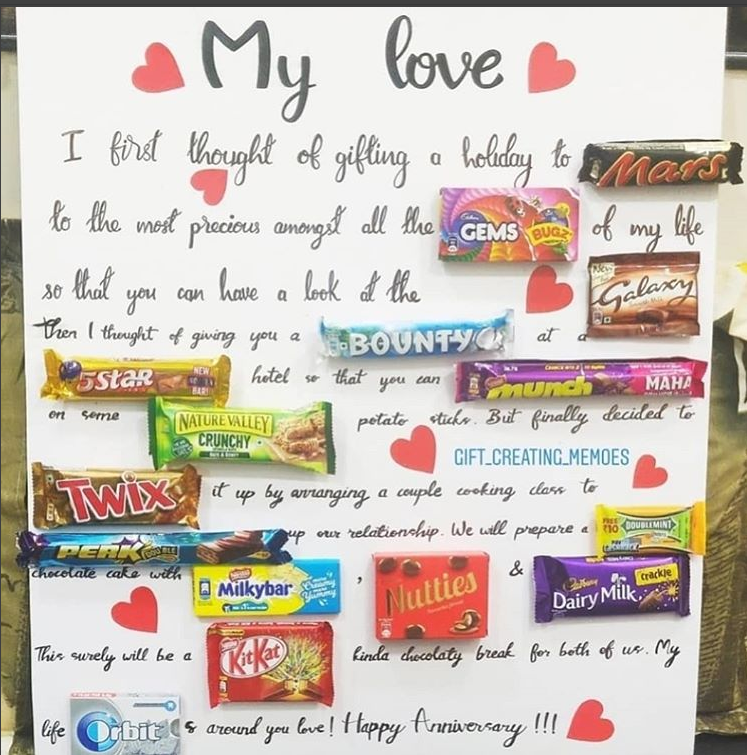 My love
I first thought of gifting a holiday to Mars
to the most precious amongst all the Cadbury GEMS BUGZ of my life
so that you can have a look at the New Galaxy Smooth Milk
Then I thought of giving you a BOUNTY at a
5Star NEW BAR! hotel so that you can munch MAHA
on some NATURE VALLEY CRUNCHY OATS & HONEY potato sticks. But finally decided to
GIFT_CREATING_MEMOES
TWIX it up by arranging a couple cooking class to
PERK DOUBLE up our relationship. We will prepare a FREE ₹10 DOUBLEMINT
chocolate cake with Nestle Milkybar Creamy Yummy , Nutties & Cadbury Dairy Milk crackle
This surely will be a Nestle KitKat kinda chocolaty break for both of us. My
life Orbit s around you love! Happy Anniversary !!!